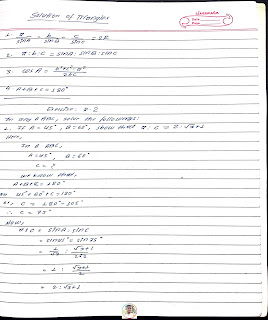 Solution of Triangles
1. a/sinA = b/sinB = c/sinC = 2R
2. a:b:c = sinA:sinB:sinC
3. cosA = b²+c²-a²/2bc
4. A+B+C=180°
Exercise: 2.2
In any Δ ABC, solve the followings:
1. If A=45°, B=60°, show that a:c = 2:√3+1
Here,
In Δ ABC,
A=45°, B=60°
C = ?
we know that,
A+B+C=180°
45°+60°+C=180°
C = 180°-105°
∴ C = 75°
Now,
a:c = sinA:sinC
= sin45°:sin75°
= 1/√2 : √3+1/2√2
= 1 : √3+1/2
= 2:√3+1